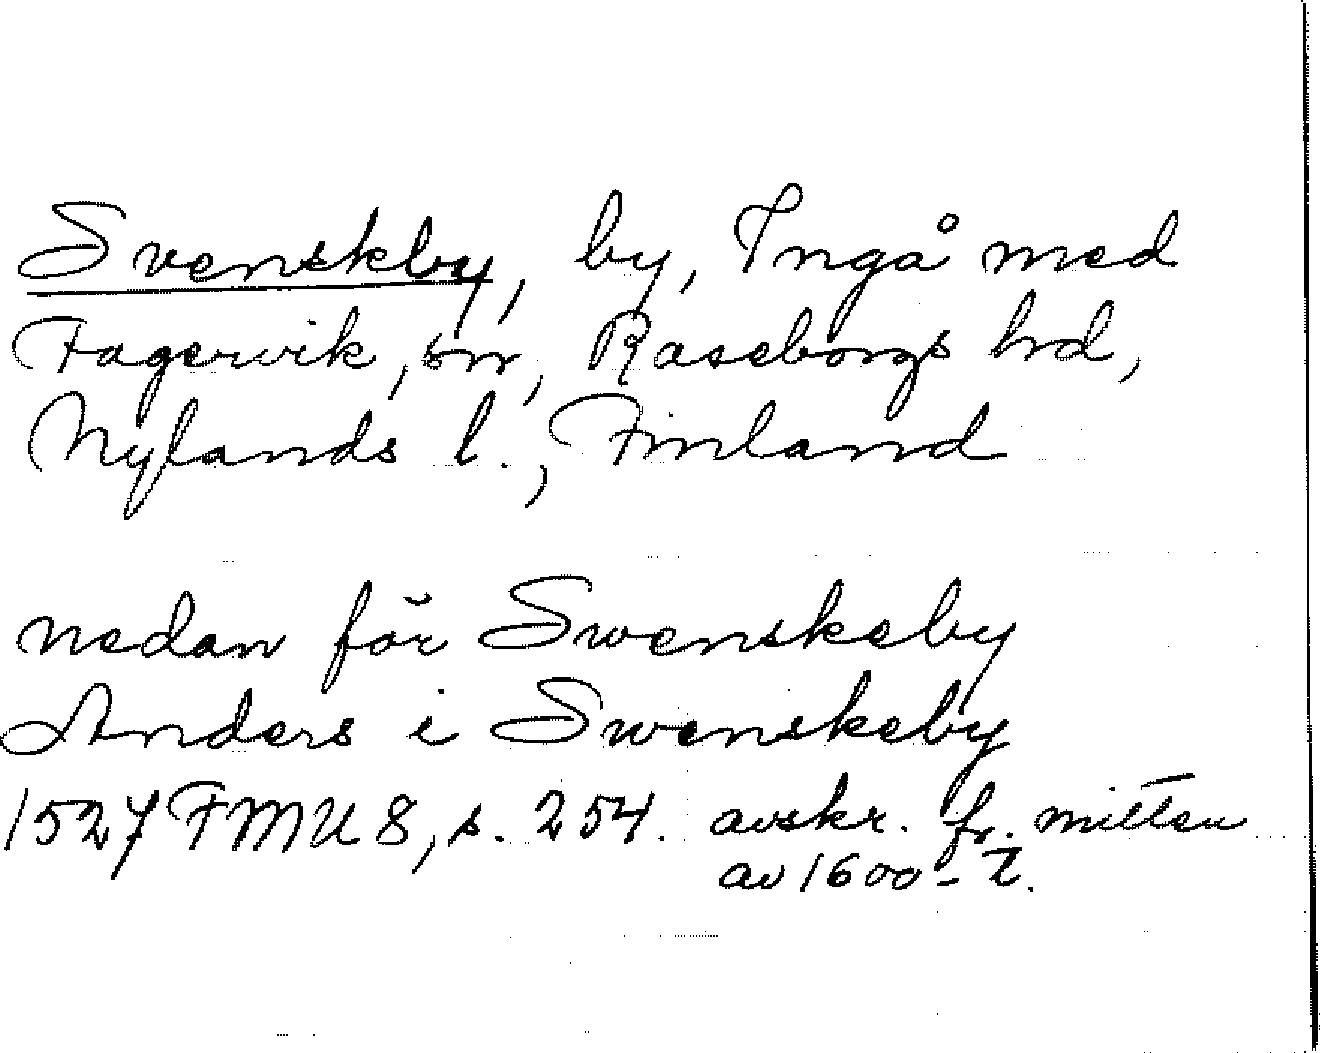 Svenskby, by, Ingå med
Fagervik, snr, Raseborgs hrd,
Nylands l., Finland
nedan för Swenskeby
Anders i Swenskeby
1527 FMU 8, s. 254. avskr. fr. mitten
av 1600-t.